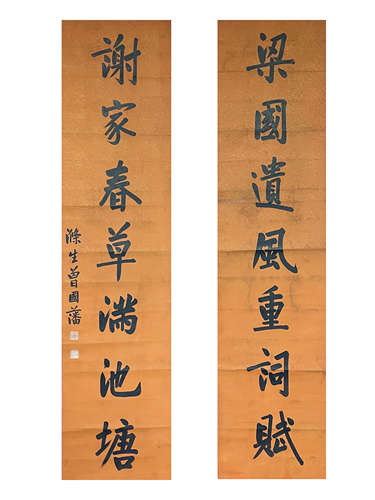 梁國遺風重詞賦
謝家春草滿池塘
滌生曾國藩